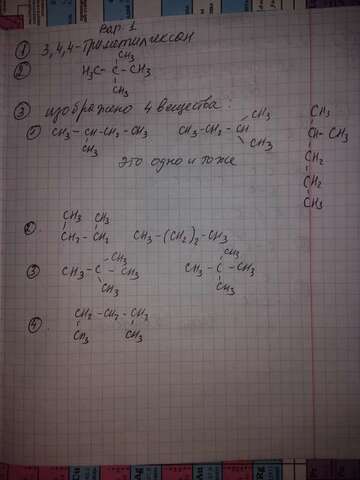 Вар. 1
① 3,4,4-триметилгексан
②
CH3
H3C- C -CH3
CH3
③ изображено 4 вещества:
① CH3 - CH - CH2 - CH3
CH3
CH3 - CH2 - CH
CH3
CH3
это одно и тоже
CH3
CH - CH3
CH2
CH2
CH3
②.
CH3 CH3
CH2 - CH2
CH3 - (CH2)2 - CH3
③
CH3
CH3 - C - CH3
CH3
CH3
CH3 - C - CH3
CH3
④.
CH2 - CH2 - CH2
CH3 CH3